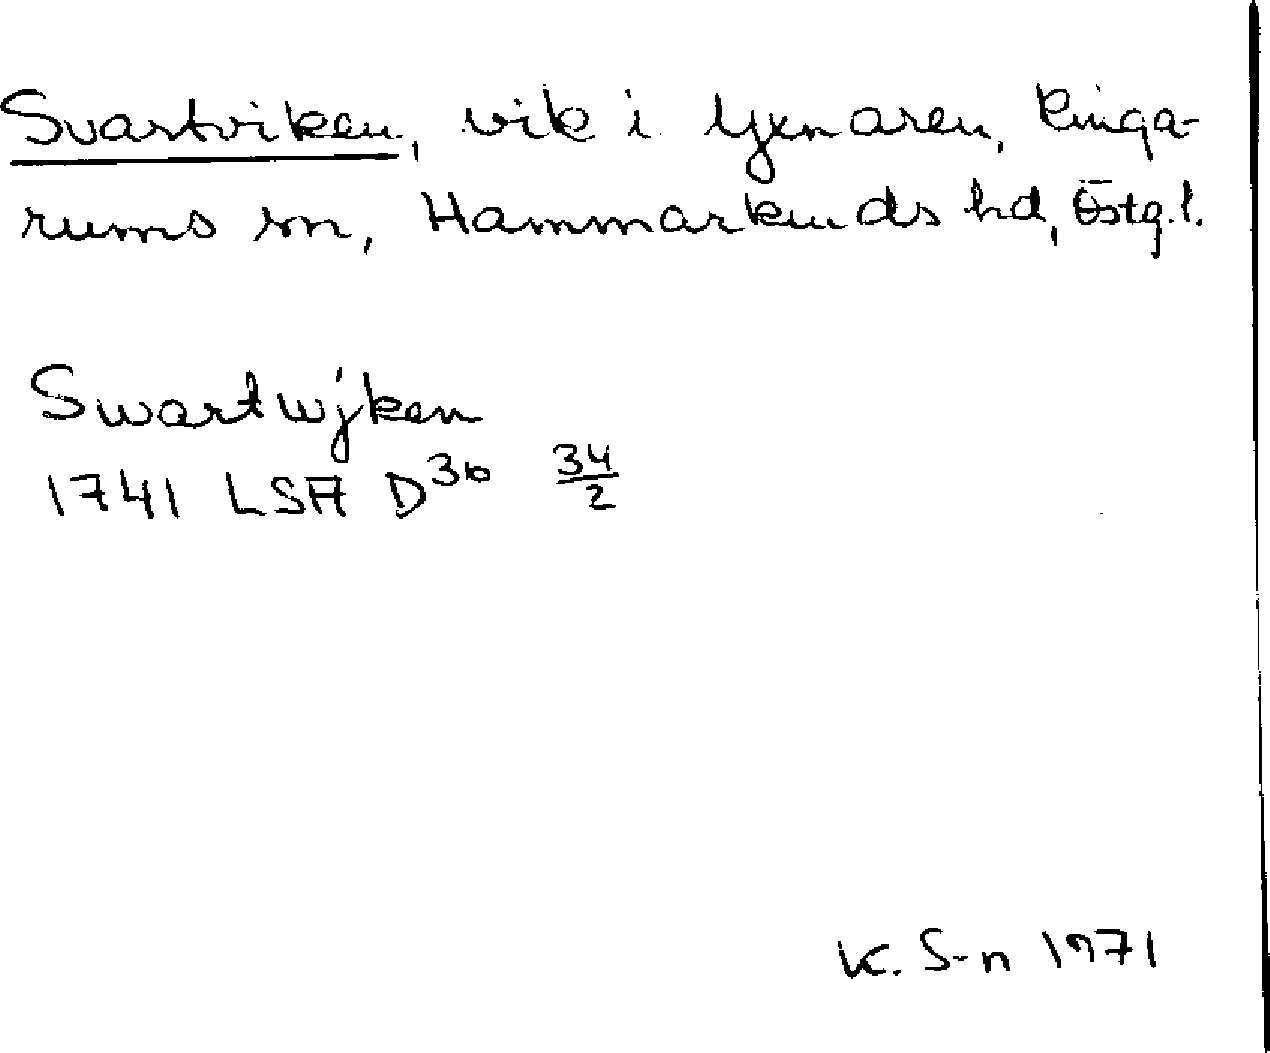 Svartviken, vik i Yxnaren, Ringa-
rums sn, Hammarkinds hd, Östg. l.
Swartwijken
1741 LSA D36 34/2
K. S-n 1971